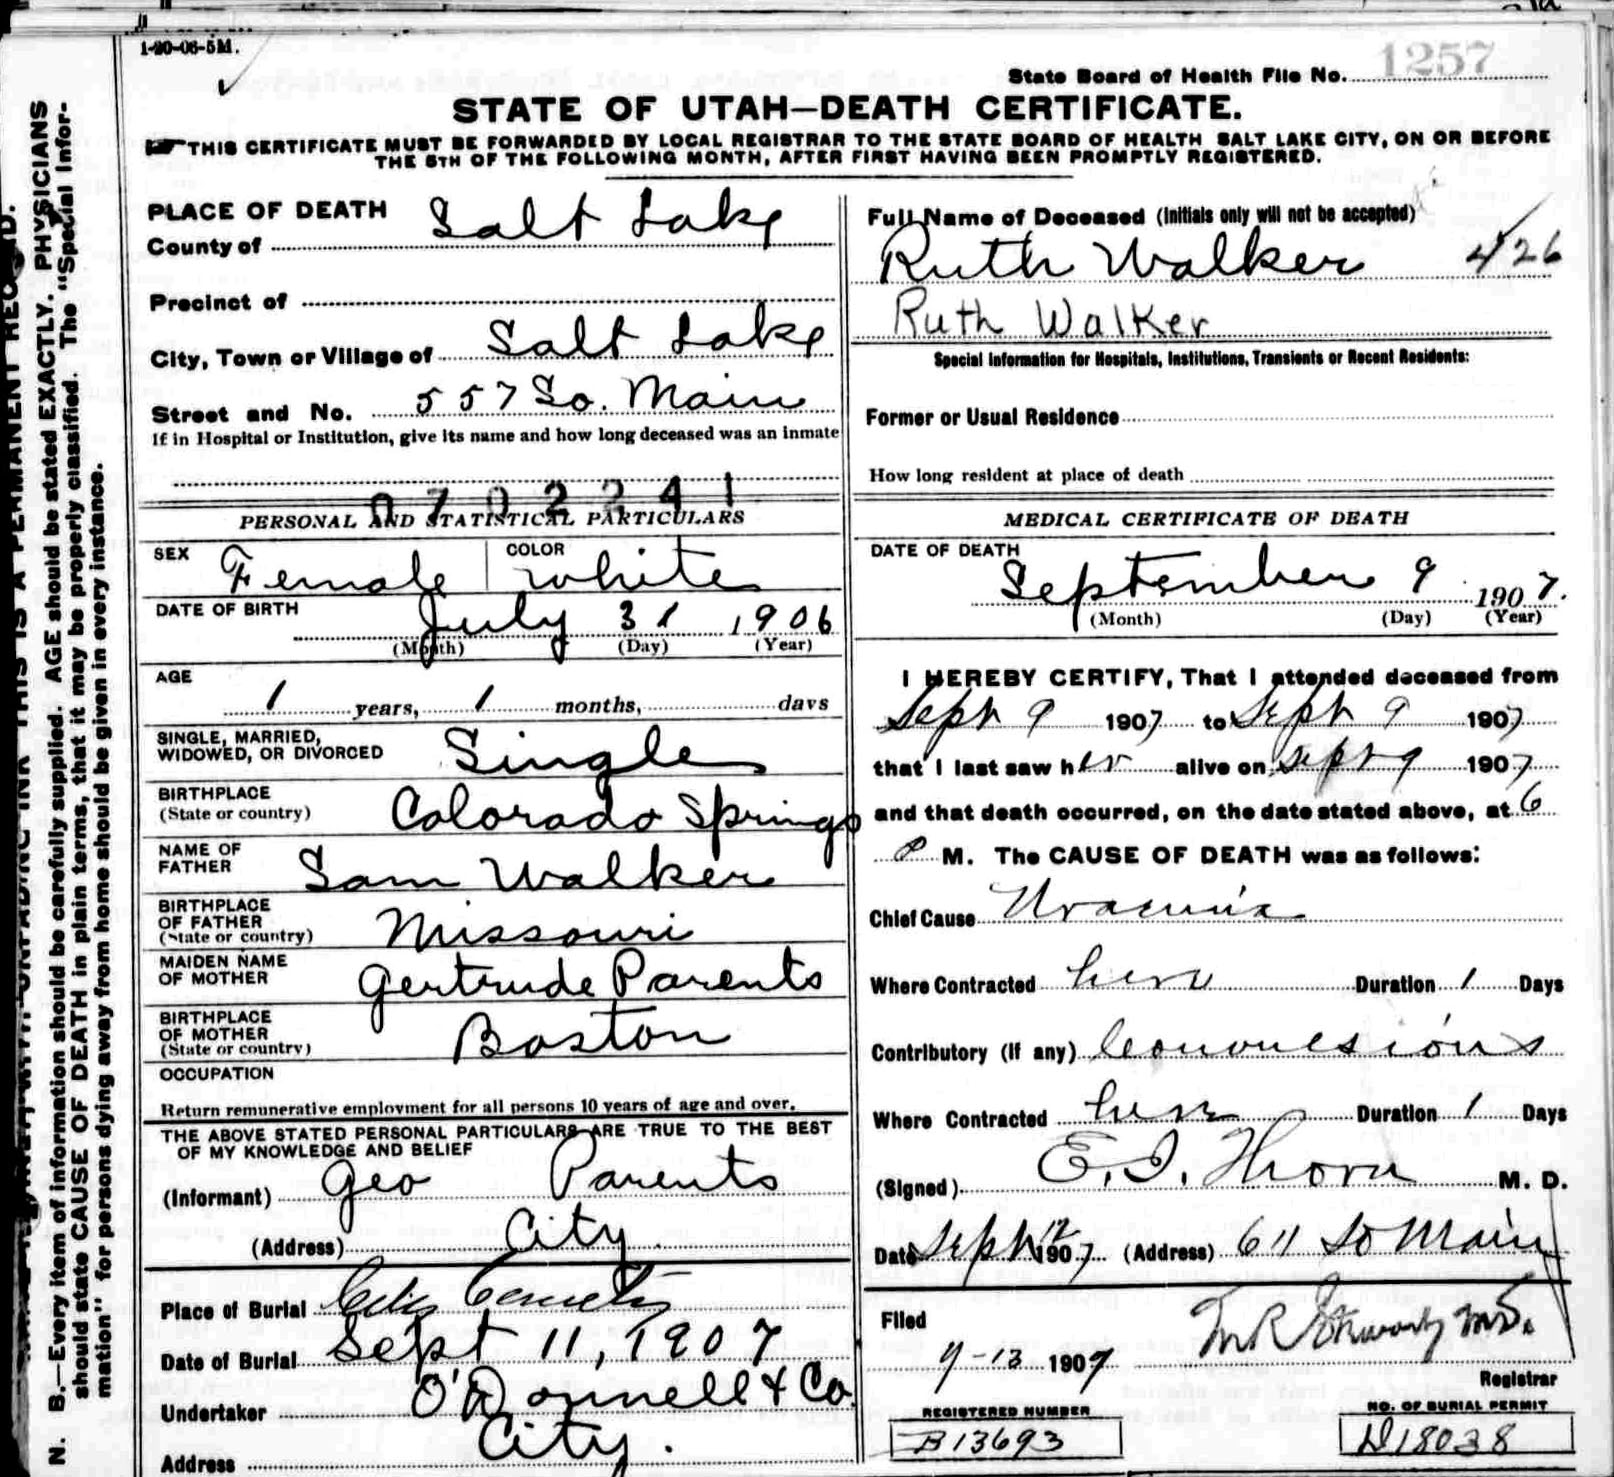 1-20-06-5M.
State Board of Health File No. 1257
STATE OF UTAH—DEATH CERTIFICATE.
THIS CERTIFICATE MUST BE FORWARDED BY LOCAL REGISTRAR TO THE STATE BOARD OF HEALTH SALT LAKE CITY, ON OR BEFORE
THE 5TH OF THE FOLLOWING MONTH, AFTER FIRST HAVING BEEN PROMPTLY REGISTERED.
PLACE OF DEATH
County of Salt Lake
Precinct of
City, Town or Village of Salt Lake
Street and No. 557 So. Main
If in Hospital or Institution, give its name and how long deceased was an inmate
0702241
PERSONAL AND STATISTICAL PARTICULARS
SEX Female COLOR White
DATE OF BIRTH July 31 1906
(Month) (Day) (Year)
AGE
1 years, 1 months, days
SINGLE, MARRIED,
WIDOWED, OR DIVORCED Single
BIRTHPLACE
(State or country) Colorado Springs
NAME OF
FATHER Sam Walker
BIRTHPLACE
OF FATHER
(State or country) Missouri
MAIDEN NAME
OF MOTHER Gertrude Parents
BIRTHPLACE
OF MOTHER
(State or country) Boston
OCCUPATION
Return remunerative employment for all persons 10 years of age and over.
THE ABOVE STATED PERSONAL PARTICULARS ARE TRUE TO THE BEST
OF MY KNOWLEDGE AND BELIEF
(Informant) Geo Parents
(Address) City
Place of Burial City Cemetery
Date of Burial Sept 11, 1907
Undertaker O'Donnell & Co.
Address City.
Full Name of Deceased (Initials only will not be accepted)
Ruth Walker 426
Ruth Walker
Special Information for Hospitals, Institutions, Transients or Recent Residents:
Former or Usual Residence
How long resident at place of death
MEDICAL CERTIFICATE OF DEATH
DATE OF DEATH
September 9 1907.
(Month) (Day) (Year)
I HEREBY CERTIFY, That I attended deceased from
Sept 9 1907 to Sept 9 1907
that I last saw her alive on Sept 9 1907
and that death occurred, on the date stated above, at 6
P M. The CAUSE OF DEATH was as follows:
Chief Cause Uraemia
Where Contracted here Duration 1 Days
Contributory (if any) Convulsions
Where Contracted here Duration 1 Days
(Signed) E. I. Thorn M. D.
Date Sept 12 1907 (Address) 611 So Main
Filed
9-13 1907 M.D.
Registrar
REGISTERED NUMBER
B13693
NO. OF BURIAL PERMIT
D18038
N. B.—Every item of information should be carefully supplied. AGE should be stated EXACTLY. PHYSICIANS
should state CAUSE OF DEATH in plain terms, that it may be properly classified. The "Special Infor-
mation" for persons dying away from home should be given in every instance.